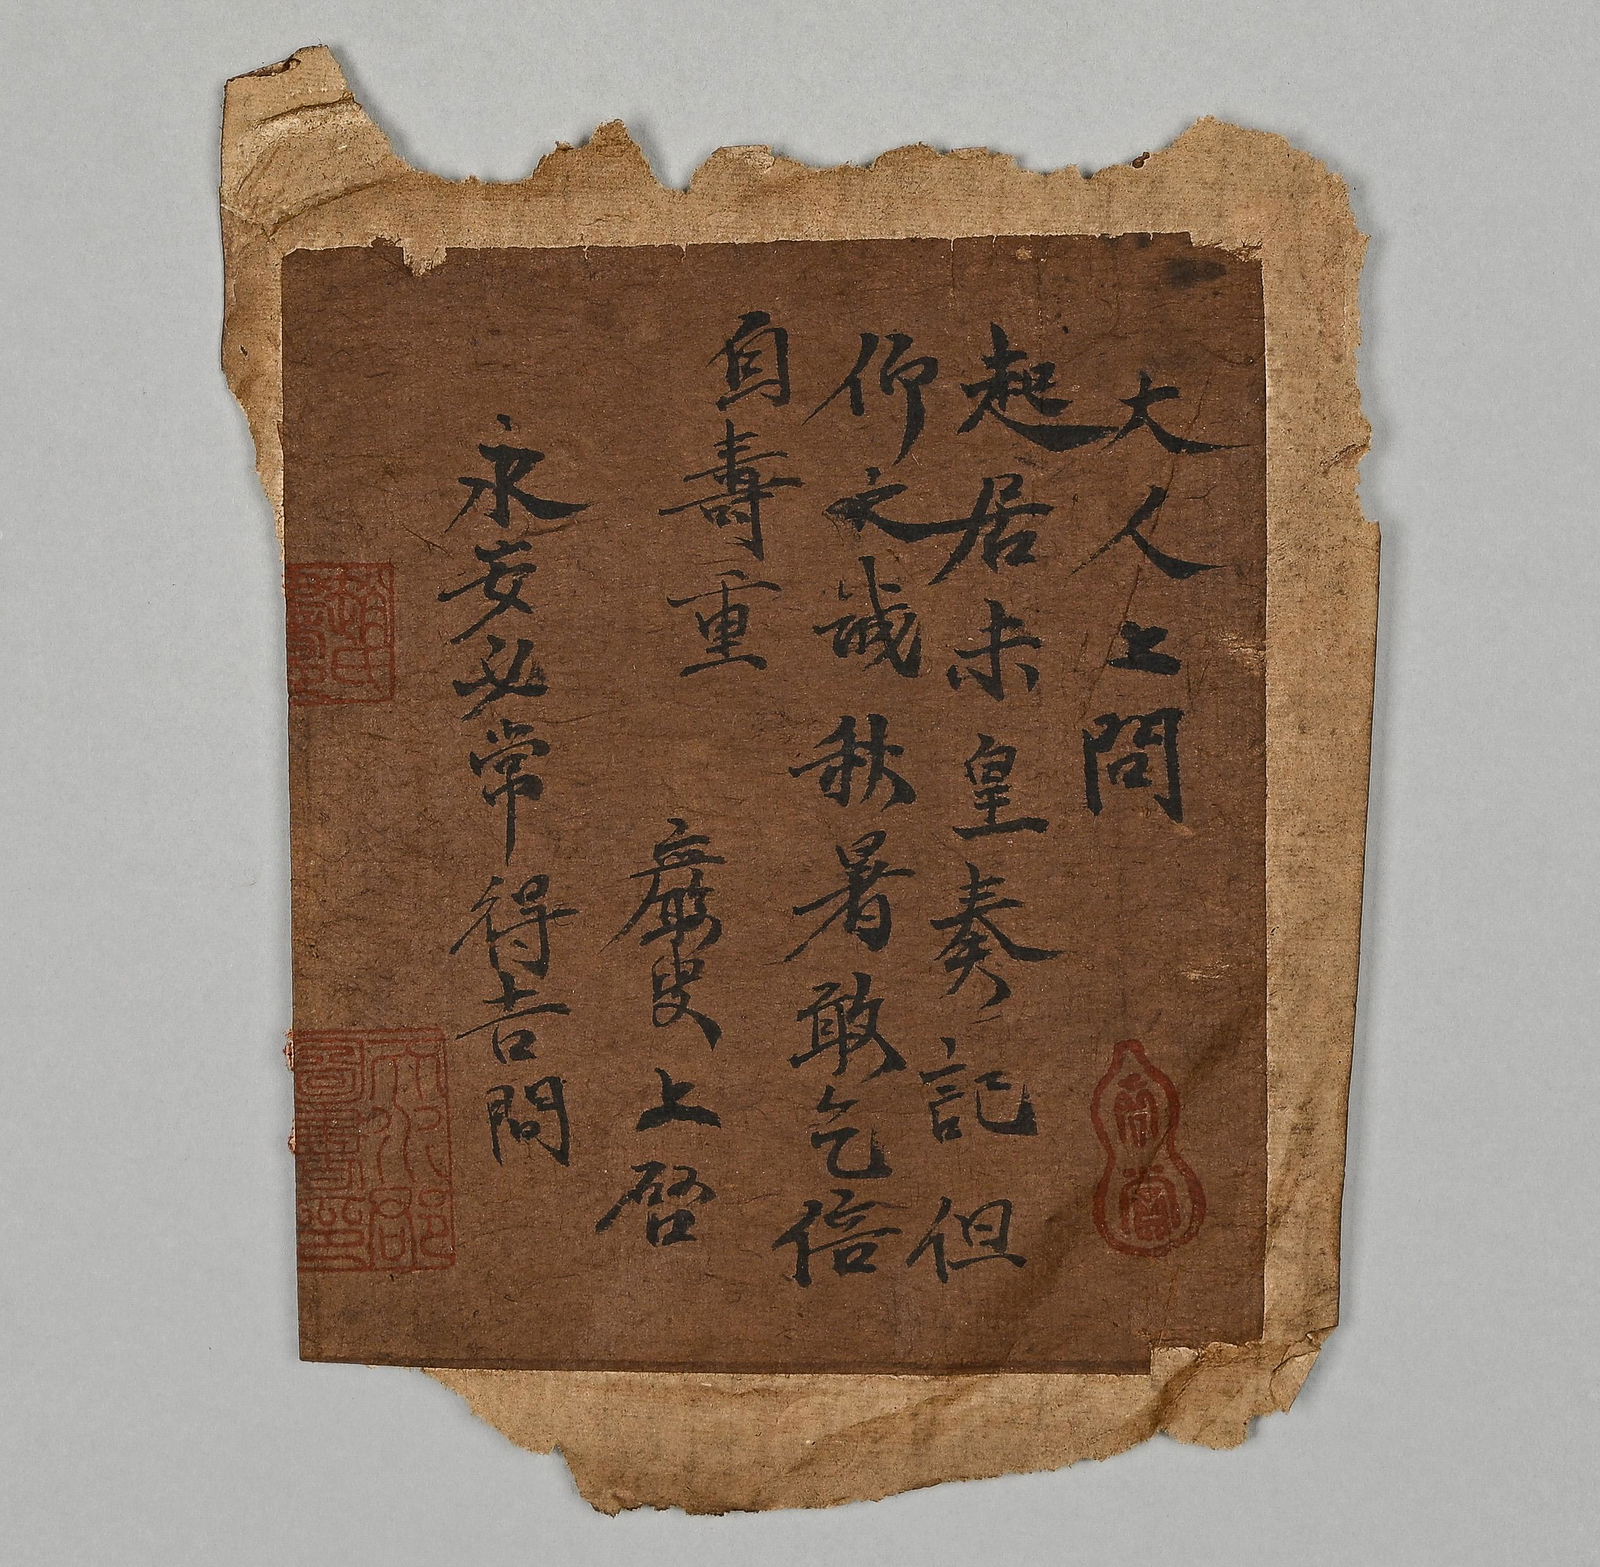 大人上問
起居未皇奏記但
仰之誠秋暑敢乞倍
自壽重
嚴叟上啓
永安必常得吉問